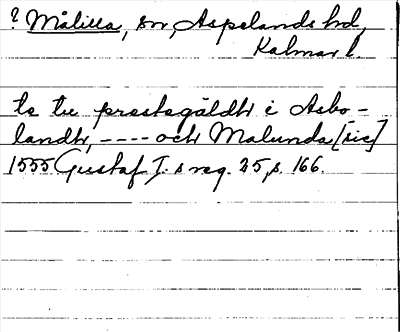 ? Målilla, sn, Aspelands hd,
Kalmar l.
te tw prestegäldh i Asbo-
landh, ---- och Malunda [sic]
1555 Gustaf I. s reg. 25, s. 166.